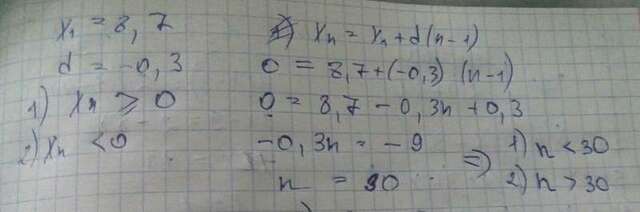 x₁ = 8,7
d = -0,3
1) xₙ ⩾ 0
2) xₙ < 0
xₙ = x₁ + d(n-1)
0 = 8,7 + (-0,3) (n-1)
0 = 8,7 - 0,3n + 0,3
-0,3n = -9
n = 30
=> 1) n < 30
2) n > 30